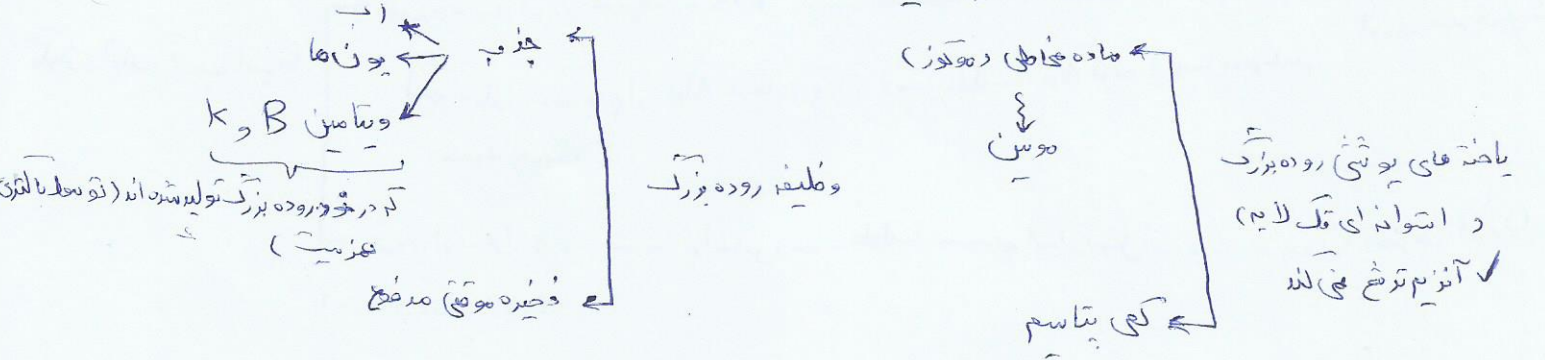 یاخته های پوششی روده بزرگ
( استوانه ای تک لایه )
✓ آنزیم ترشح نمی کند
ماده مخاطی ( موکوز )
موسین
کمی پتاسیم
وظیفه روده بزرگ
جذب
آب
یون ها
ویتامین B و K
که در خود روده بزرگ تولید شده اند ( توسط باکتری
همزیست )
ذخیره موقتی مدفوع